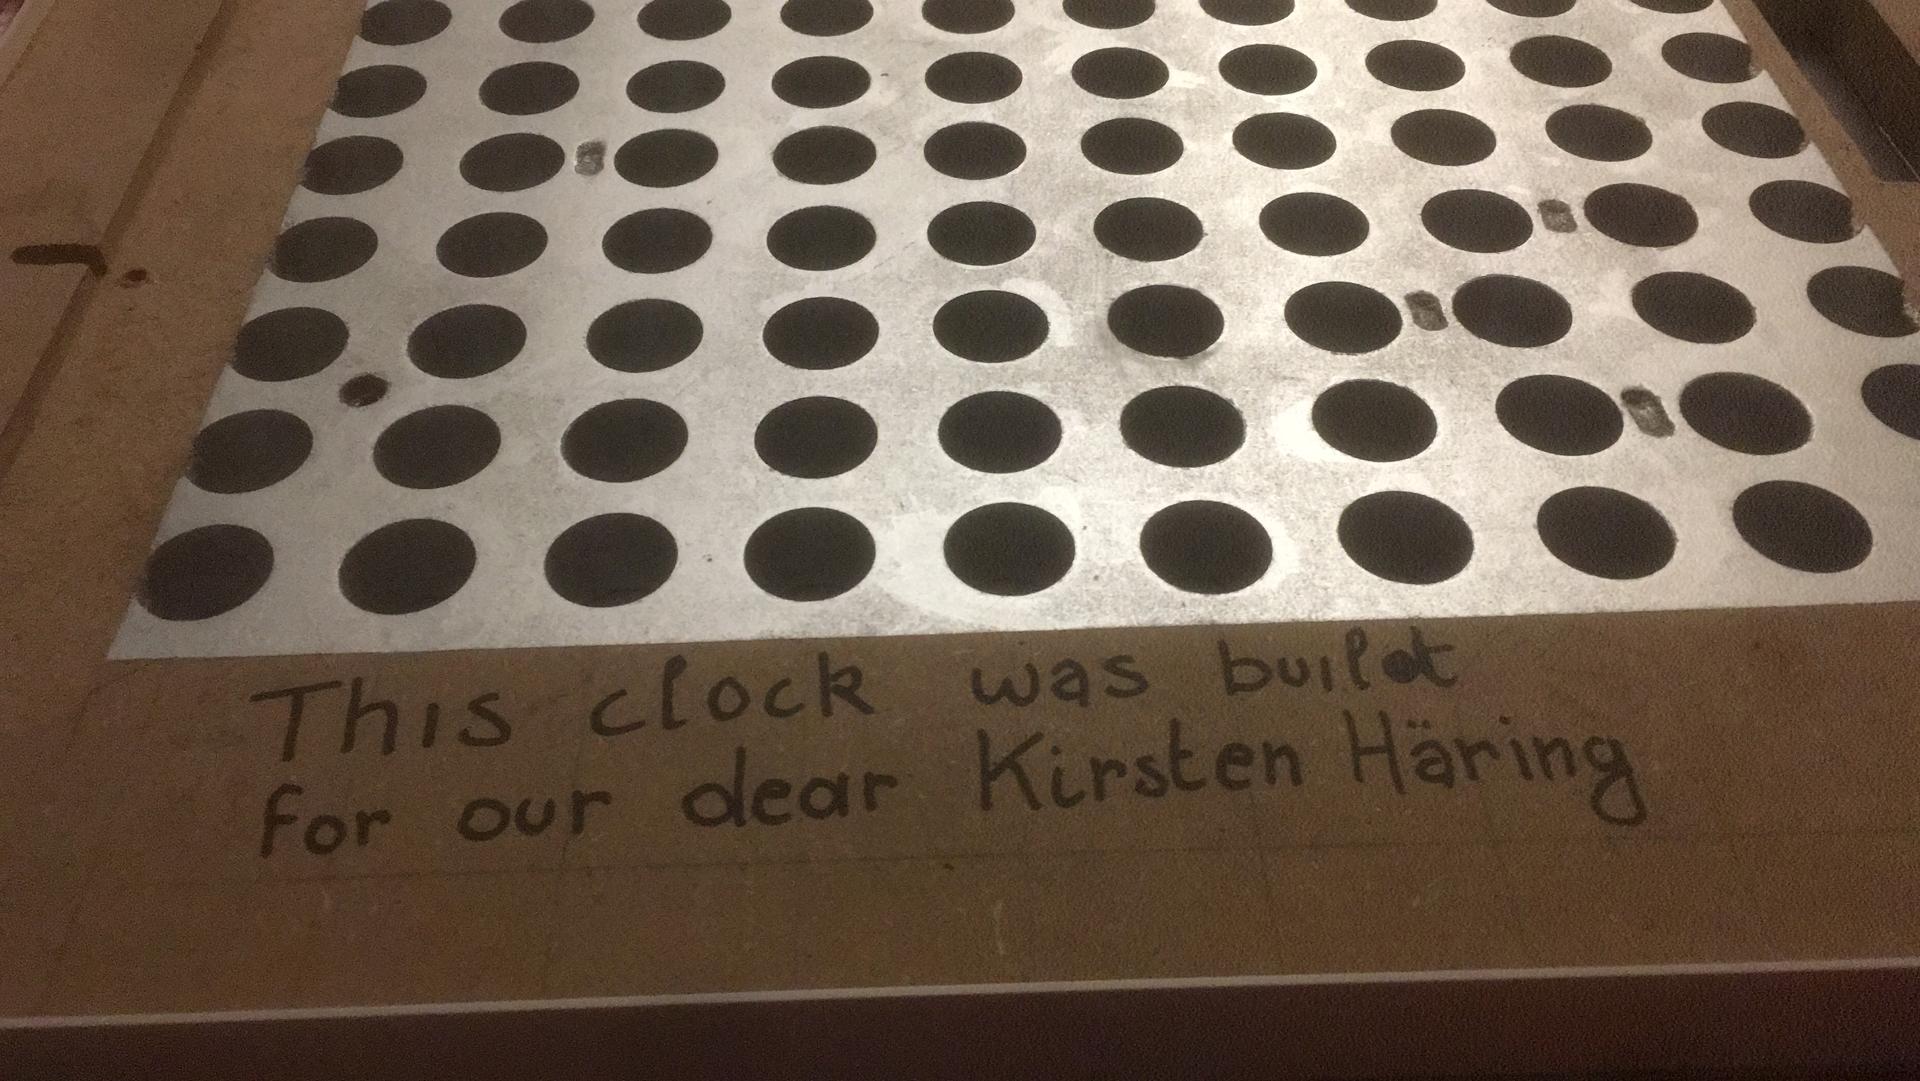 This clock was built
for our dear Kirsten Häring